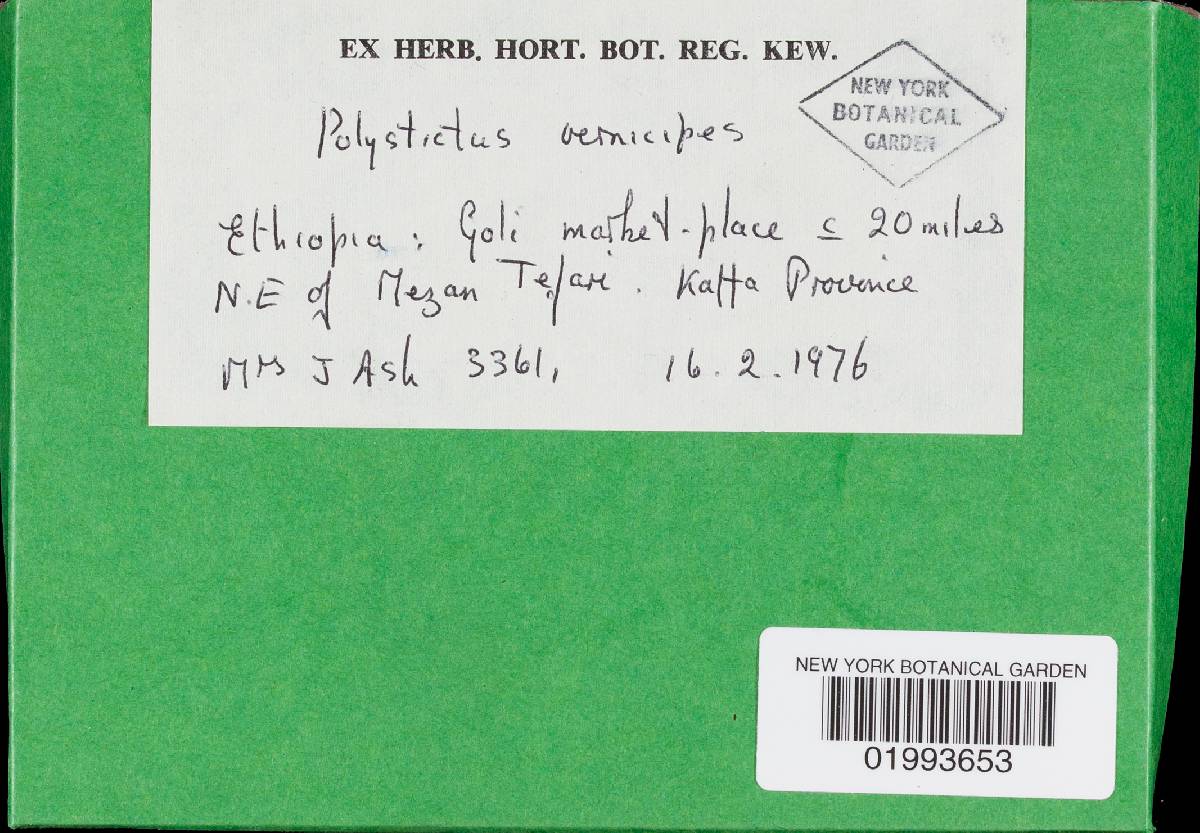 EX HERB. HORT. BOT. REG. KEW.
NEW YORK
BOTANICAL
GARDEN
Polystictus vernicipes
Ethiopia : Goli market-place c 20 miles
N.E of Mezan Tefari . Kaffa Province
Mrs J Ash 3361, 16.2.1976
NEW YORK BOTANICAL GARDEN
01993653